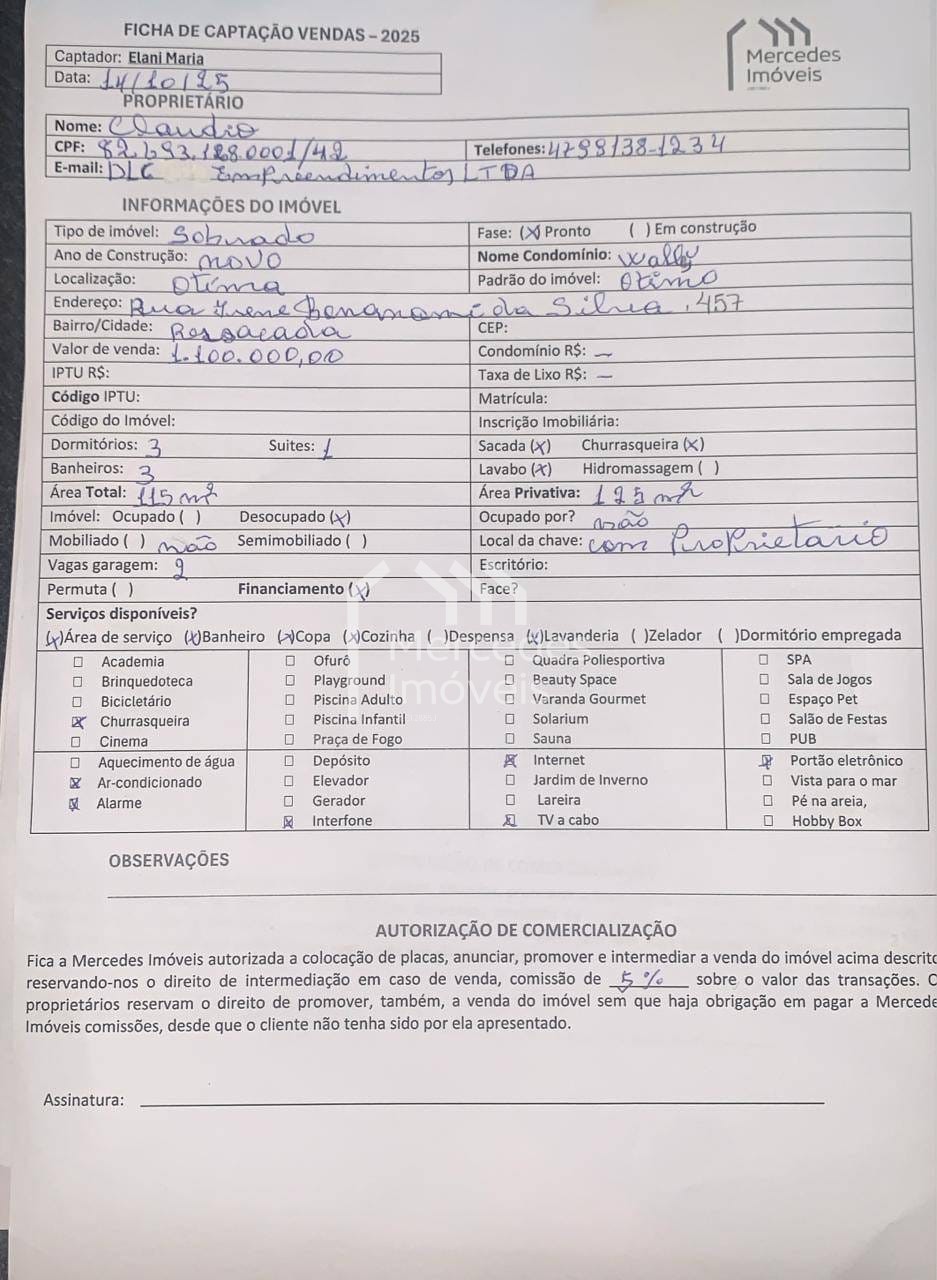 FICHA DE CAPTAÇÃO VENDAS – 2025
Mercedes
Imóveis
Captador: Elani Maria
Data: 14/10/25
PROPRIETÁRIO
Nome: Claudio
CPF: 82.693.188.0001/42 Telefones: 4798138-1234
E-mail: DLC Empreendimentos LTDA
INFORMAÇÕES DO IMÓVEL
Tipo de imóvel: Sobrado Fase: (X) Pronto ( ) Em construção
Ano de Construção: novo Nome Condomínio: Wally
Localização: Otima Padrão do imóvel: Otimo
Endereço: Rua Irene Bonanomi da Silva, 457
Bairro/Cidade: Ressacada CEP:
Valor de venda: 1.100.000,00 Condomínio R$: —
IPTU R$: Taxa de Lixo R$: —
Código IPTU: Matrícula:
Código do Imóvel: Inscrição Imobiliária:
Dormitórios: 3 Suites: 1 Sacada (x) Churrasqueira (x)
Banheiros: 3 Lavabo (x) Hidromassagem ( )
Área Total: 115 m² Área Privativa: 125 m²
Imóvel: Ocupado ( ) Desocupado (x) Ocupado por? não
Mobiliado ( ) não Semimobiliado ( ) Local da chave: com Proprietario
Vagas garagem: 2 Escritório:
Permuta ( ) Financiamento (x) Face?
Serviços disponíveis?
(x)Área de serviço (x)Banheiro (x)Copa (x)Cozinha ( )Despensa (x)Lavanderia ( )Zelador ( )Dormitório empregada
☐ Academia ☐ Ofurô ☐ Quadra Poliesportiva ☐ SPA
☐ Brinquedoteca ☐ Playground ☐ Beauty Space ☐ Sala de Jogos
☐ Bicicletário ☐ Piscina Adulto ☐ Varanda Gourmet ☐ Espaço Pet
☒ Churrasqueira ☐ Piscina Infantil ☐ Solarium ☐ Salão de Festas
☐ Cinema ☐ Praça de Fogo ☐ Sauna ☐ PUB
☐ Aquecimento de água ☐ Depósito ☒ Internet ☒ Portão eletrônico
☒ Ar-condicionado ☐ Elevador ☐ Jardim de Inverno ☐ Vista para o mar
☒ Alarme ☐ Gerador ☐ Lareira ☐ Pé na areia,
☒ Interfone ☒ TV a cabo ☐ Hobby Box
Mercedes
Imóveis
OBSERVAÇÕES
AUTORIZAÇÃO DE COMERCIALIZAÇÃO
Fica a Mercedes Imóveis autorizada a colocação de placas, anunciar, promover e intermediar a venda do imóvel acima descrito
reservando-nos o direito de intermediação em caso de venda, comissão de 5% sobre o valor das transações. O
proprietários reservam o direito de promover, também, a venda do imóvel sem que haja obrigação em pagar a Mercede
Imóveis comissões, desde que o cliente não tenha sido por ela apresentado.
Assinatura: